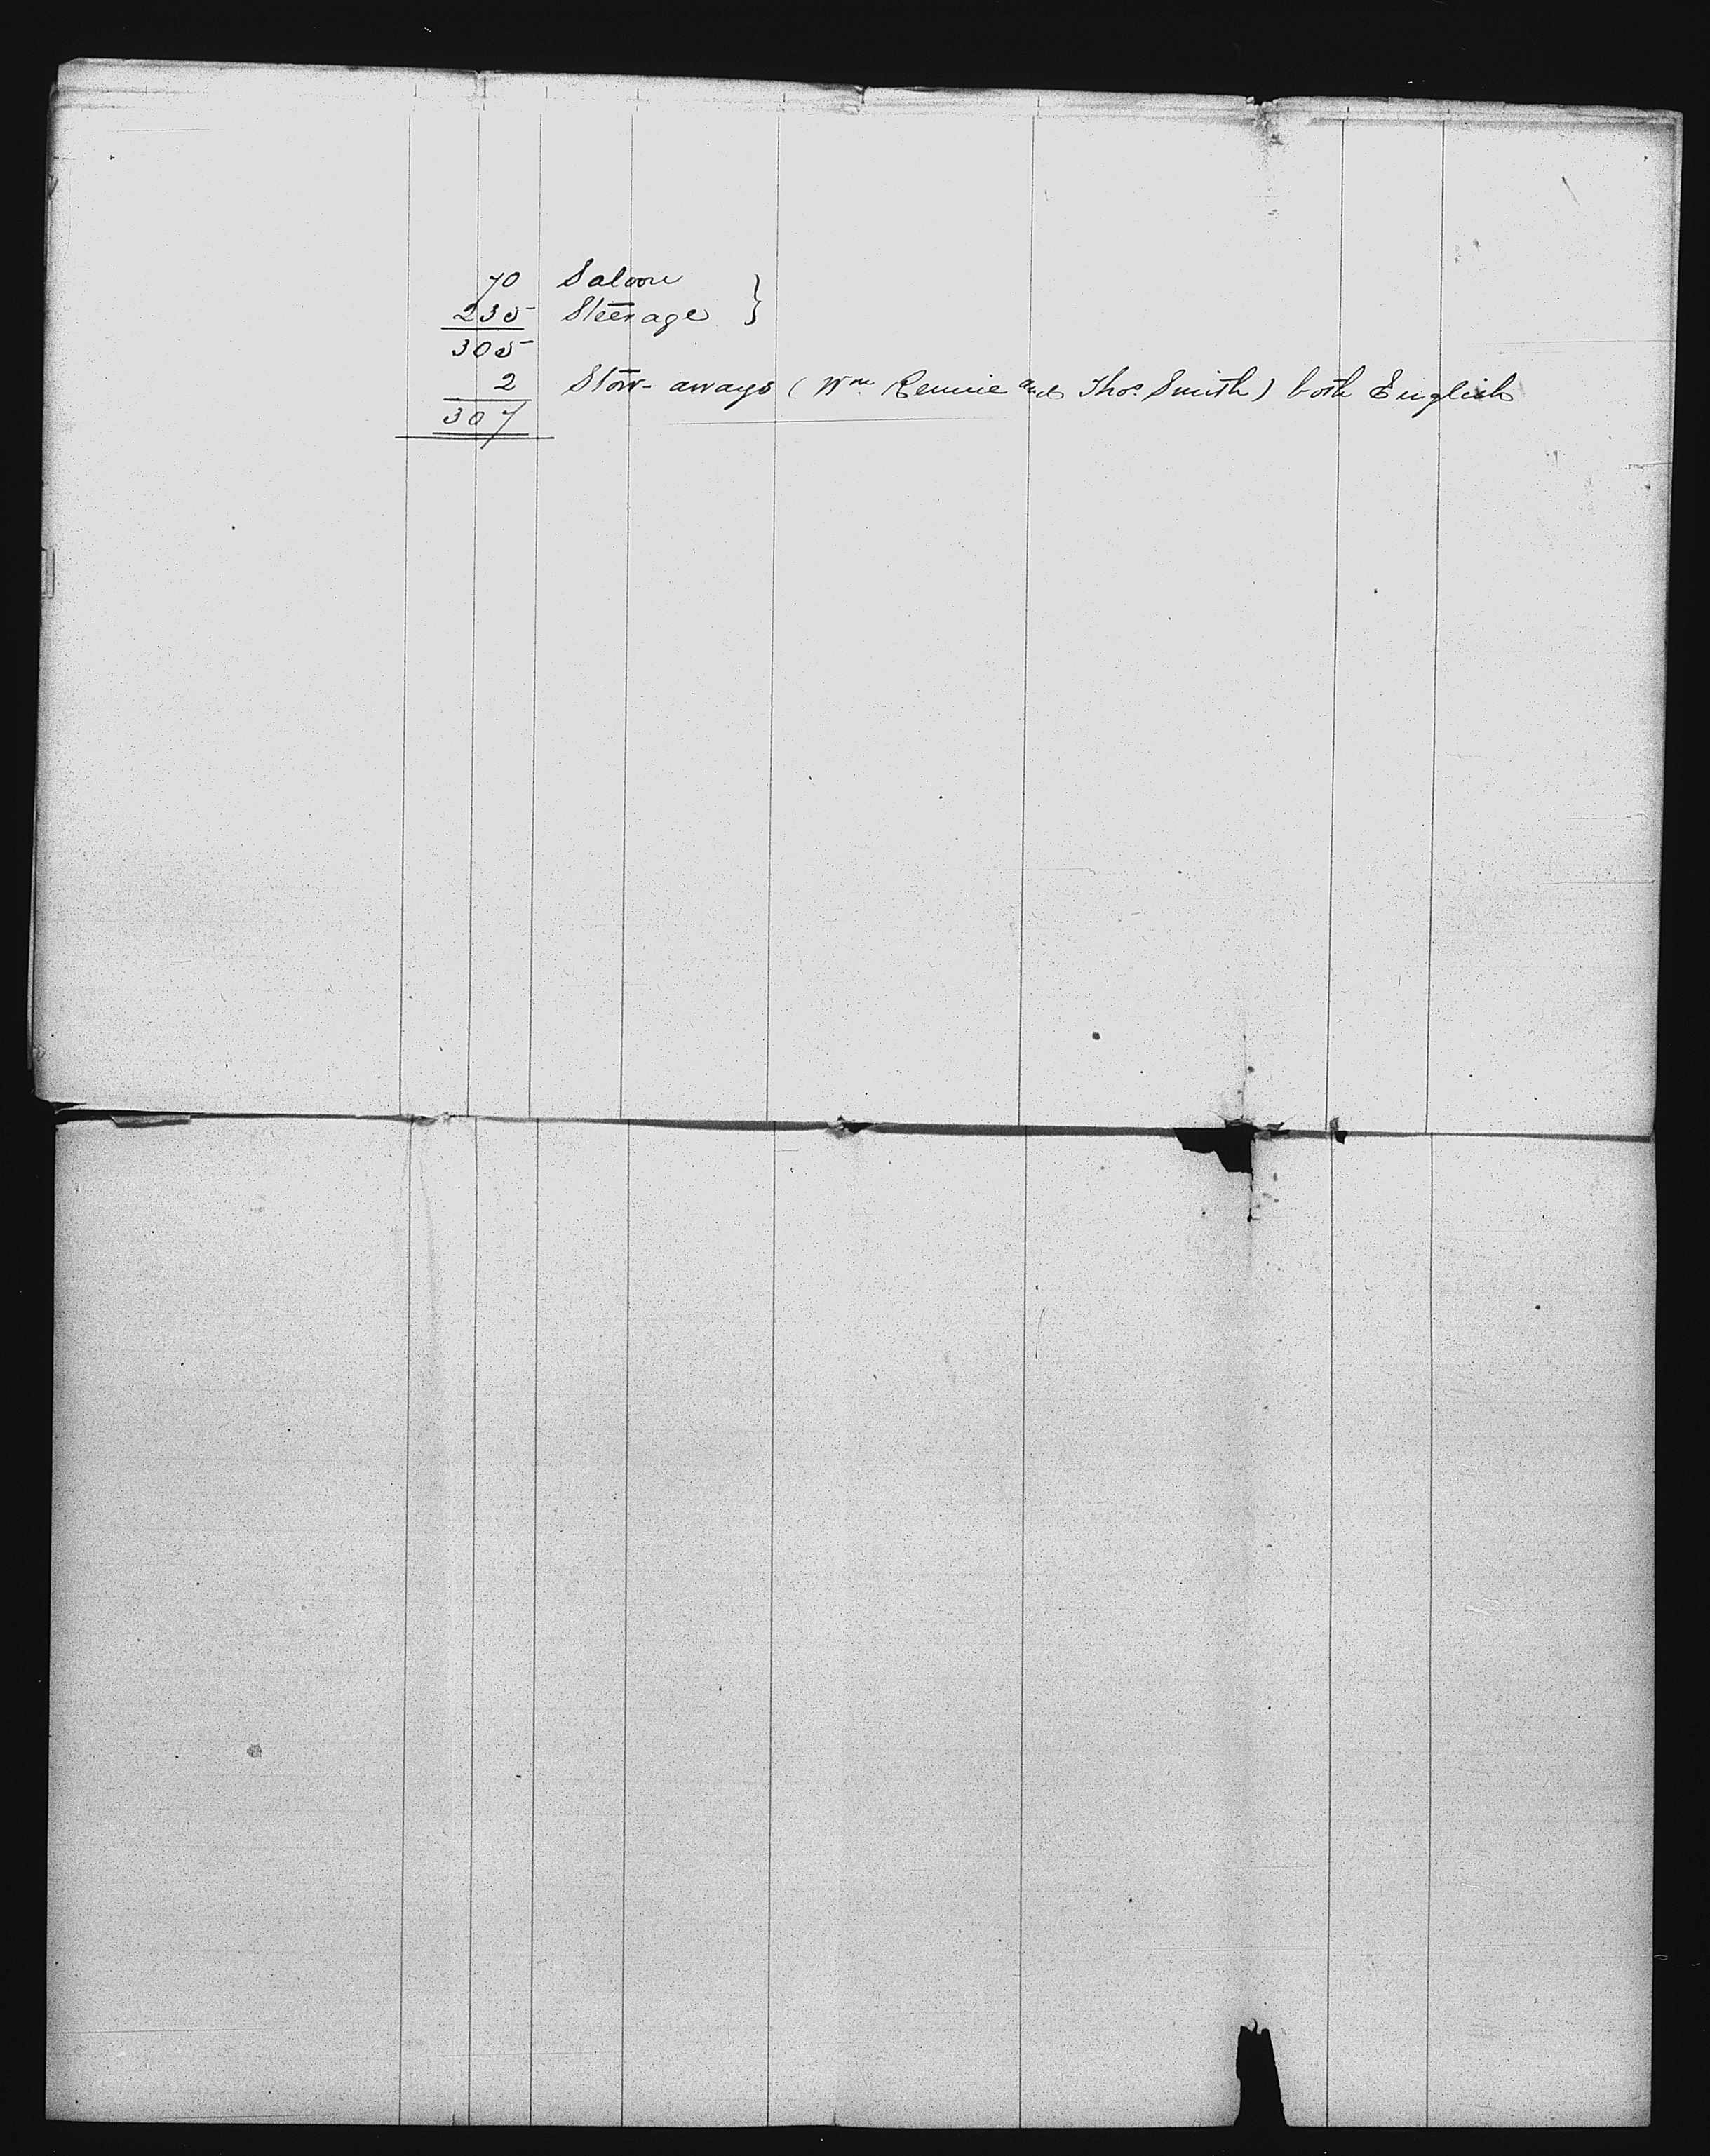 70 Saloon }
235 Steerage }
305
2 Stow-aways (Wm. Rennie and Thos. Smith) both English
307